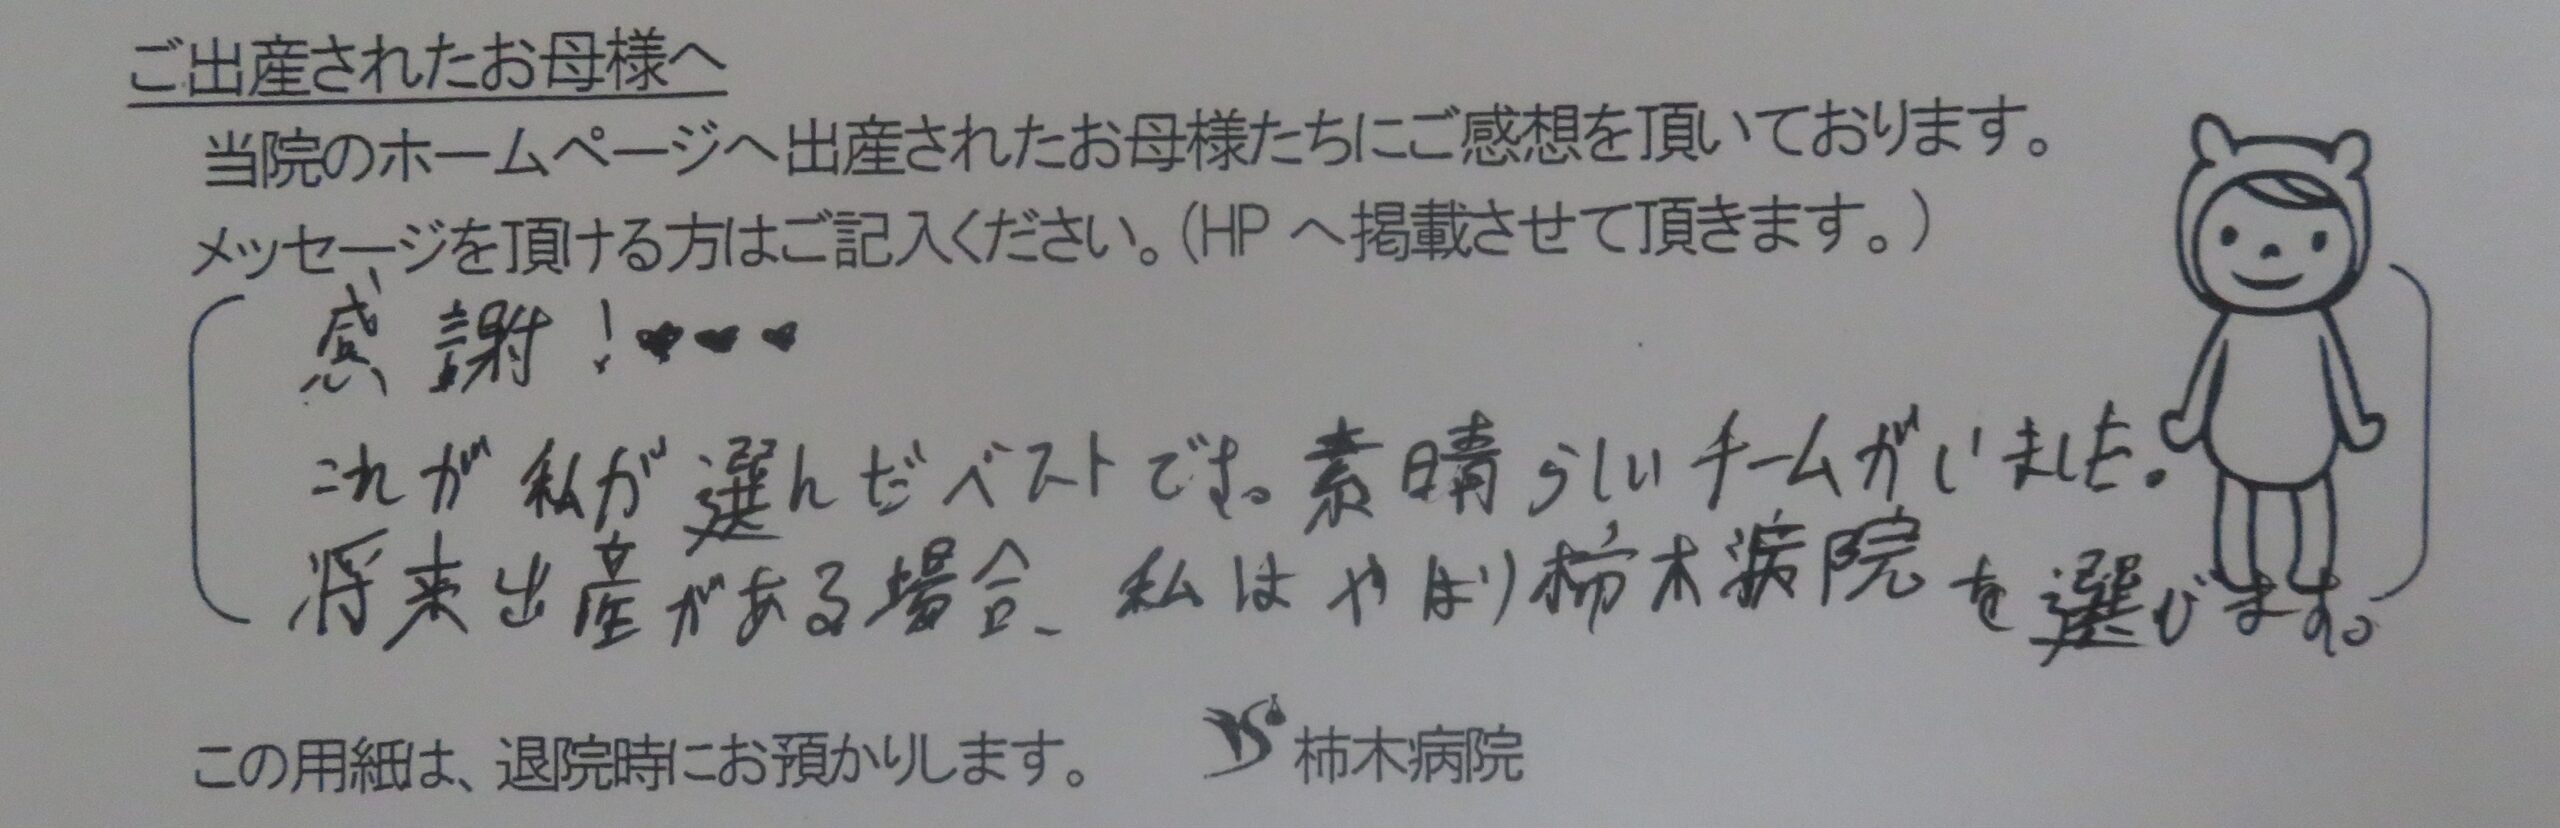 ご出産されたお母様へ
当院のホームページへ出産されたお母様たちにご感想を頂いております。
メッセージを頂ける方はご記入ください。(HP へ掲載させて頂きます。)
感謝!♥♥♥
これが私が選んだベストです。素晴らしいチームがいました。
将来出産がある場合、私はやはり柿木病院を選びます。
この用紙は、退院時にお預かりします。 柿木病院